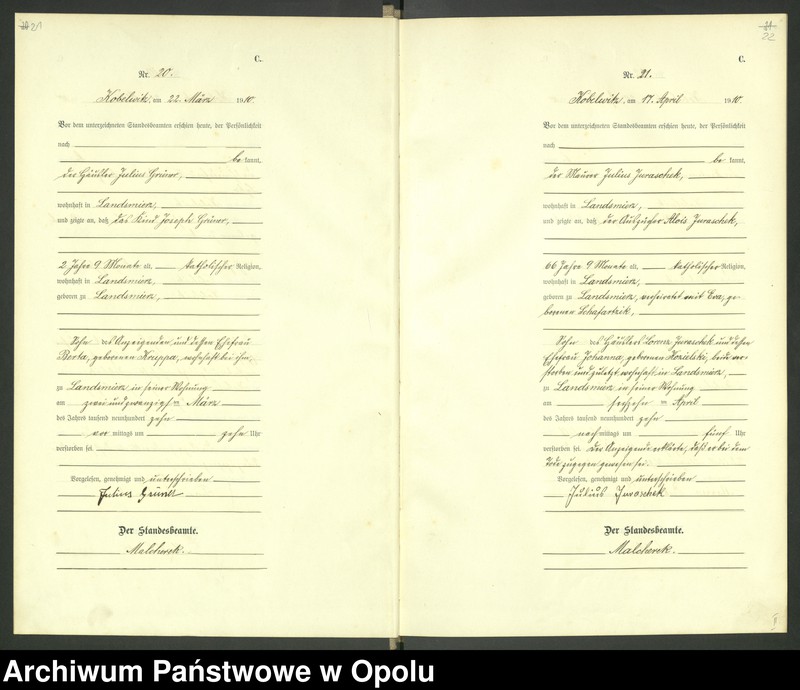 21
C.
Nr. 20.
Kobelwitz, am 22. März 1910.
Vor dem unterzeichneten Standesbeamten erschien heute, der Persönlichkeit
nach
be kannt,
der Häusler Julius Grüner,
wohnhaft in Landsmierz,
und zeigte an, daß das Kind Joseph Grüner,
2 Jahre 9 Monate alt, katholischer Religion,
wohnhaft in Landsmierz,
geboren zu Landsmierz,
Sohn des Anzeigenden und dessen Ehefrau
Berta, geborenen Kruppa, wohnhaft bei ihm,
zu Landsmierz in seiner Wohnung
am zweiundzwanzigsten März
des Jahres tausend neunhundert zehn
vor mittags um zehn Uhr
verstorben sei.
Vorgelesen, genehmigt und unterschrieben
Julius
Der Standesbeamte.
Malcherek.
21
22
C.
Nr. 21.
Kobelwitz, am 17. April 1910.
Vor dem unterzeichneten Standesbeamten erschien heute, der Persönlichkeit
nach
be kannt,
der Maurer Julius Juraschek,
wohnhaft in Landsmierz,
und zeigte an, daß der Auszügler Alois Juraschek,
66 Jahre 9 Monate alt, katholischer Religion,
wohnhaft in Landsmierz,
geboren zu Landsmierz, verheiratet mit Eva, ge-
borenen Schafartzik,
Sohn des Häuslers Lorenz Juraschek und dessen
Ehefrau Johanna, geborenen Kozielski, beide ver-
storben und zuletzt wohnhaft in Landsmierz,
zu Landsmierz in seiner Wohnung
am sechzehnten April
des Jahres tausend neunhundert zehn
nach mittags um fünf Uhr
verstorben sei. Der Anzeigende erklärte, daß er bei dem
Tode zugegen gewesen sei.
Vorgelesen, genehmigt und unterschrieben
Julius Juraschek
Der Standesbeamte.
Malcherek.
Archiwum Państwowe w Opolu